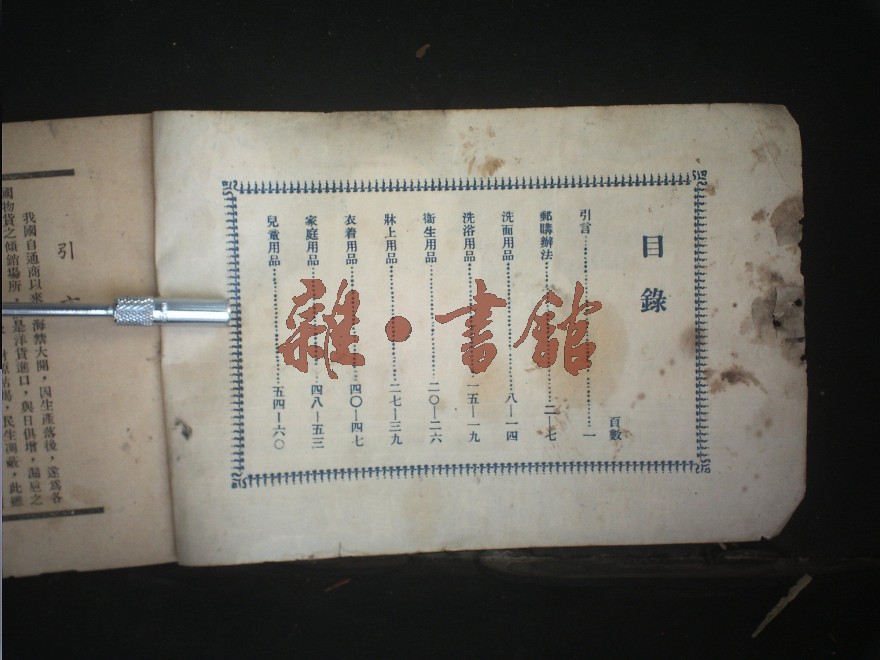 目錄
頁數
引言……一
郵購辦法……二—七
洗面用品……八—一四
洗浴用品……一五—一九
衞生用品……二〇—二六
牀上用品……二七—三九
衣着用品……四〇—四七
家庭用品……四八—五三
兒童用品……五四—六〇
雜·書館
引
我國自通商以來 海禁大開，因生產落後，遂爲各
國物貨之傾銷場所， 是洋貨進口，與日俱增，漏巵之
民生凋蔽，此應